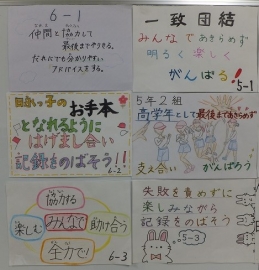 6-1
仲間と協力して
最後までやりきる。
だれにでも分かりやすい
アドバイスをする。
一致団結
みんなであきらめず
明るく楽しく
がんばる!
5-1
っ子のお手本
となれるように
はげまし合い
記録をのばそう!!
6-2
5年2組
高学年として最後まであきらめず
支え合い
がんばろう
協力する
楽しむ
みんなで
助け合う
全力で!
6-3
失敗を責めずに
楽しみながら
記録をのばそう
5-3